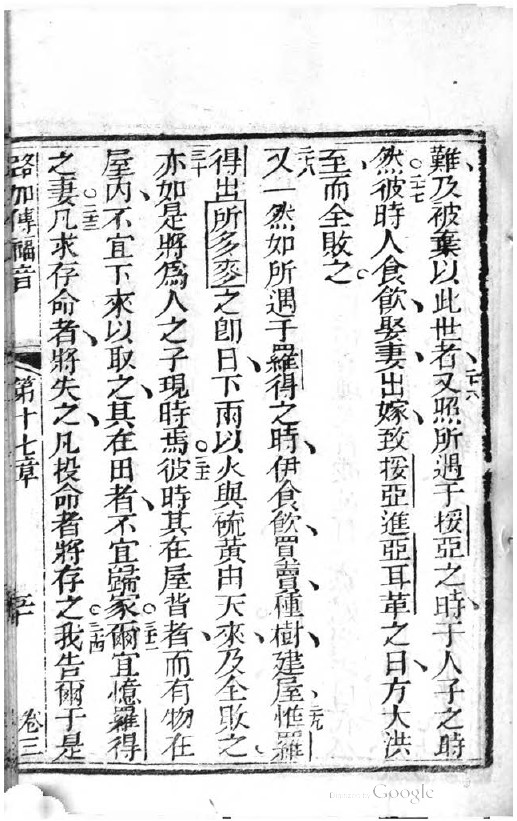 難及被棄以此世者二六又照所遇于挼亞之時于人子之時
二七然彼時人食飲娶妻出嫁致挼亞進亞耳革之日方大洪
至而全敗之
二八又一然如所遇于羅得之時伊食飲買賣種樹建屋二九惟羅
得出所多麥之卽日下雨以火與硫黃由天來及全敗之
三十亦如是將爲人之子現時焉三一彼時其在屋背者而有物在
屋內不宜下來以取之其在田者不宜歸家三二爾宜憶羅得
之妻三三凡求存命者將失之凡投命者將存之三四我告爾于是
路加傳福音 第十七章 卷三
Digitized by Google